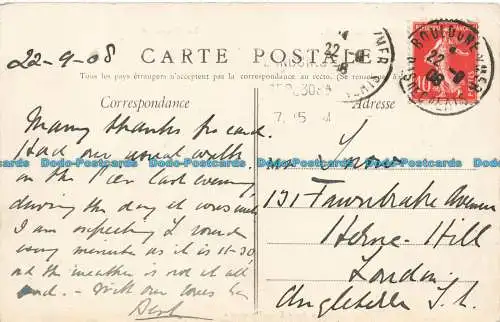 22-9-08
CARTE POSTALE
Tous les pays étrangers n'acceptent pas la correspondance au recto. (Se renseigner à
Correspondance
Adresse
Many thanks for card.
Had our usual walk
on the Pier last evening
during the day it was
I am expecting L round
every minute as it is 11-30,
and the weather is not at all
good. - With our loves
Bert
Snow
131 Fawnbrake Avenue
Herne-Hill
London
Angleterre S.E.
BOULOGNE S MER
22-9
08
10
Dodo-Postcards Dodo-Postcards Dodo-Postcards Dodo-Postcards